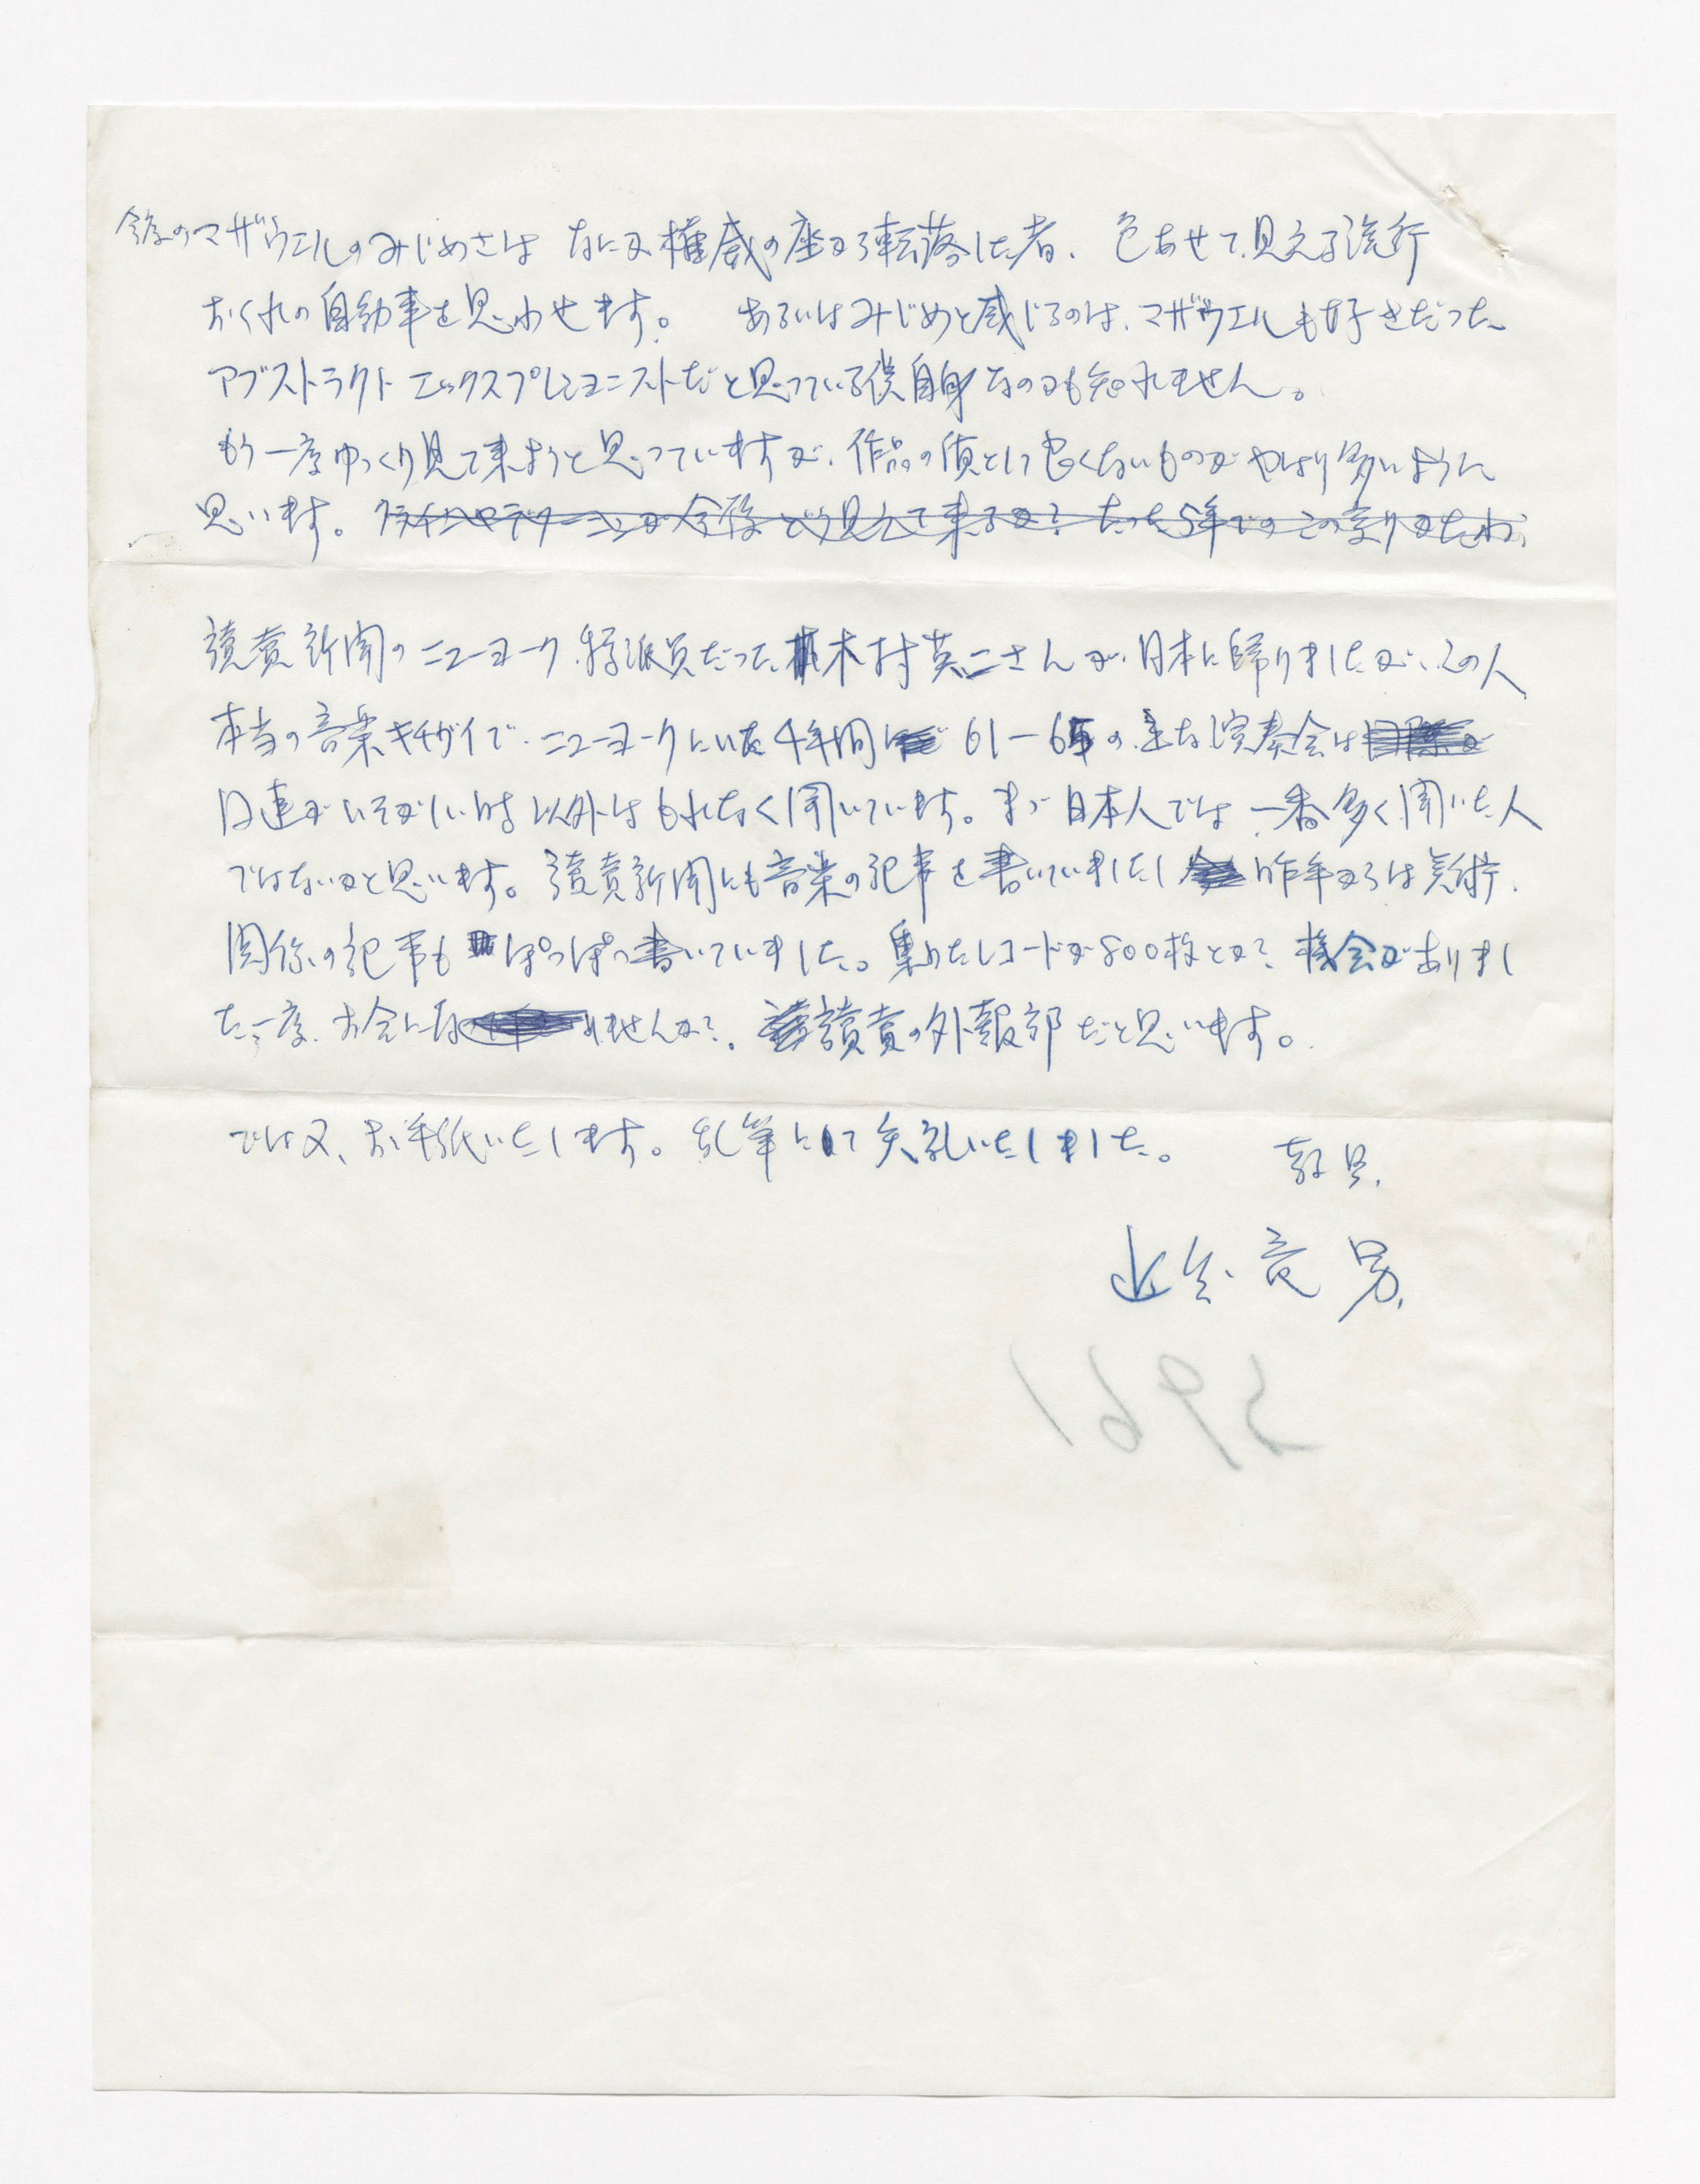 今度のマザウエルのみじめさは なにか権威の座から転落した者、 色あせて見える流行
おくれの自動車を思わせます。 あるいはみじめと感じるのは、マザウエルも好きだった
アブストラクト エックスプレショニストだと思っている僕自身なのかも知れません。
もう一度ゆっくり見て来ようと思っていますが、作品の質として良くないものがやはり多いように
思います。 クラインやデクーニングが今後どう見えて来るか? たった5年でのこの変りかたね。
読売新聞のニューヨーク特派員だった 木村英二さんが、日本に帰りましたが、この人
本当の音楽キチガイで、ニューヨークにいた4年間 61−65の主な演奏会は
日通がいそがしい時以外はもれなく聞いています。まづ日本人では一番多く聞いた人
ではないかと思います。読売新聞にも音楽の記事を書いていましたし 昨年からは美術
関係の記事も ぽつぽつ書いていました。集めたレコードが800枚とか? 機会がありまし
たら一度、お会いになりませんか?。 読売の外報部だと思います。
では又、お手紙いたします。乱筆にて失礼いたしました。 敬具.
近藤竜男.
5961